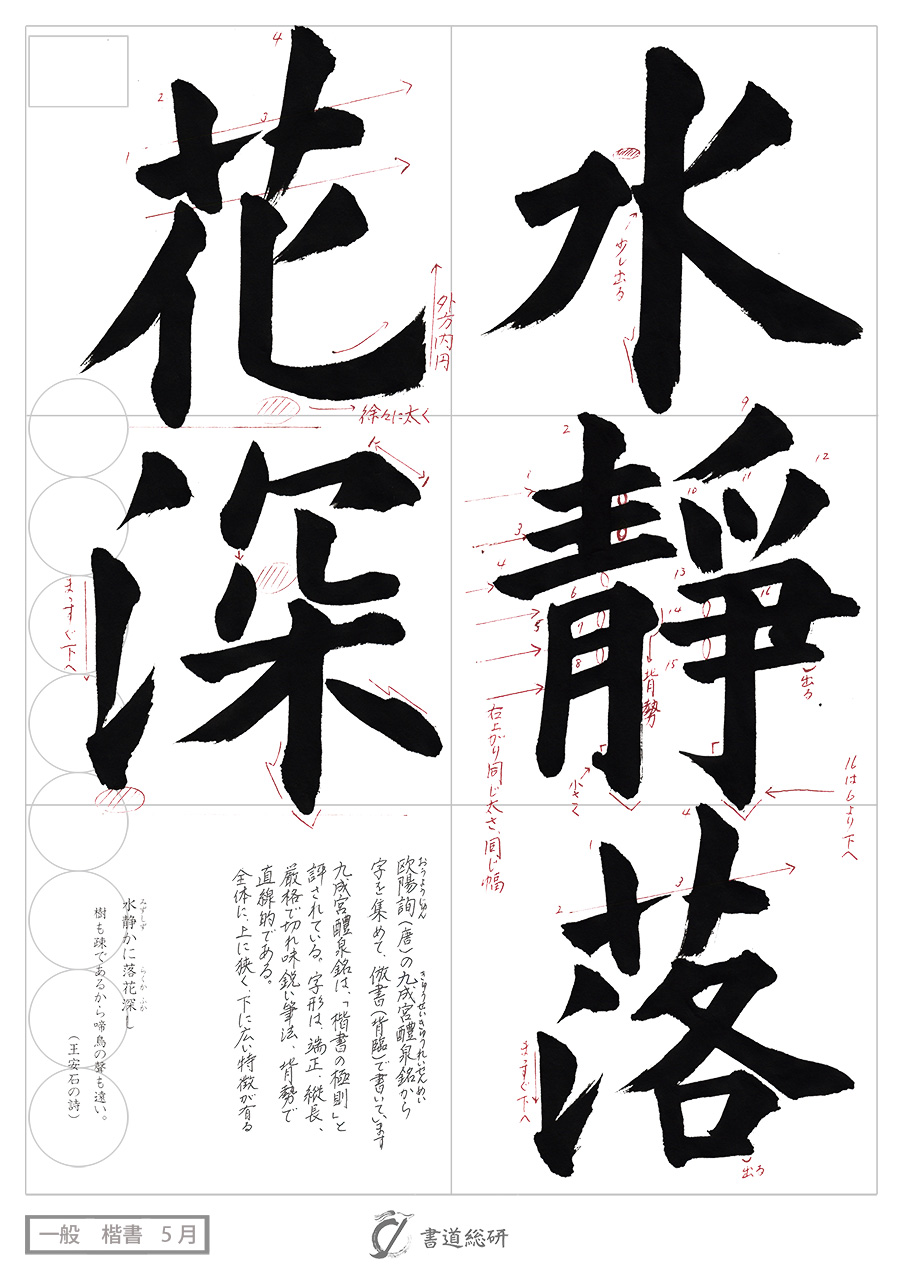 水
靜
落
花
深
少し出る
外方内円
徐々に太く
まっすぐ下へ
背勢
出る
小さく
右上がり同じ太さ、同じ幅
16は6より下へ
まっすぐ下へ
出る
欧陽詢(唐)の九成宮醴泉銘から
おうようじゅん
きゅうせいきゅうれいせんめい
字を集めて、倣書(背臨)で書いています
九成宮醴泉銘は、「楷書の極則」と
評されている。字形は、端正、縦長、
厳格で切れ味鋭い筆法、背勢で
直線的である。
全体に、上に狭く、下に広い特徴が有る
水静かに落花深し
みずしず
らくか
ふか
樹も疎であるから啼鳥の聲も遠い。
(王安石の詩)
一般 楷書 5月
書道総研